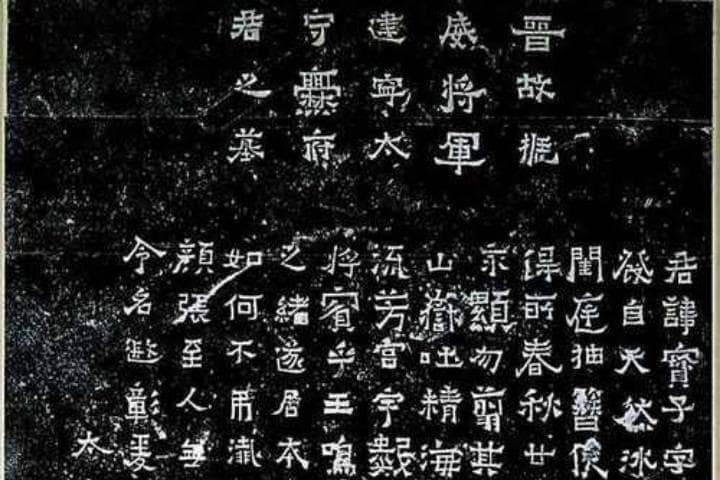 晉故振
威將軍
建寧太
守爨府
君之墓
君諱寶子字
發自天然冰
閨庭抽簪俟
得所春秋廿
永顯勿剪其
山嶽吐精海
流芳宮宇數
將賓乎王鳴
之緒遂居本
如何不弔殲
顏張至人無
令名遐彰爰
太